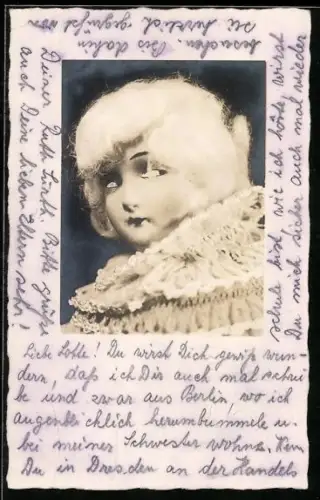 Liebe Lotte! Du wirst Dich gewiß wun-
dern, daß ich Dir auch mal schrei-
be und zwar aus Berlin, wo ich
augenblicklich herumbummele u.
bei meiner Schwester wohne. Wenn
Du in Dresden an der Handels
schule bist, wie ich hörte, wirst
Du mich sicher auch mal wieder
besuchen. Bis dahin
sei herzlich gegrüßt von
Deiner Ruth Bitte grüße
auch Deine lieben Eltern sehr!